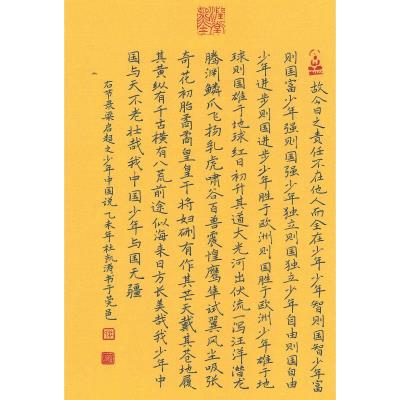 故今日之责任不在他人而全在少年少年智则国智少年富
则国富少年强则国强少年独立则国独立少年自由则国自由
少年进步则国进步少年胜于欧洲则国胜于欧洲少年雄于地
球则国雄于地球红日初升其道大光河出伏流一泻汪洋潜龙
腾渊鳞爪飞扬乳虎啸谷百兽震惶鹰隼试翼风尘吸张
奇花初胎矞矞皇皇干将发硎有作其芒天戴其苍地履
其黄纵有千古横有八荒前途似海来日方长美哉我少年中
国与天不老壮哉我中国少年与国无疆
右节录梁启超之少年中国说 乙未年杜凯涛书于莞邑